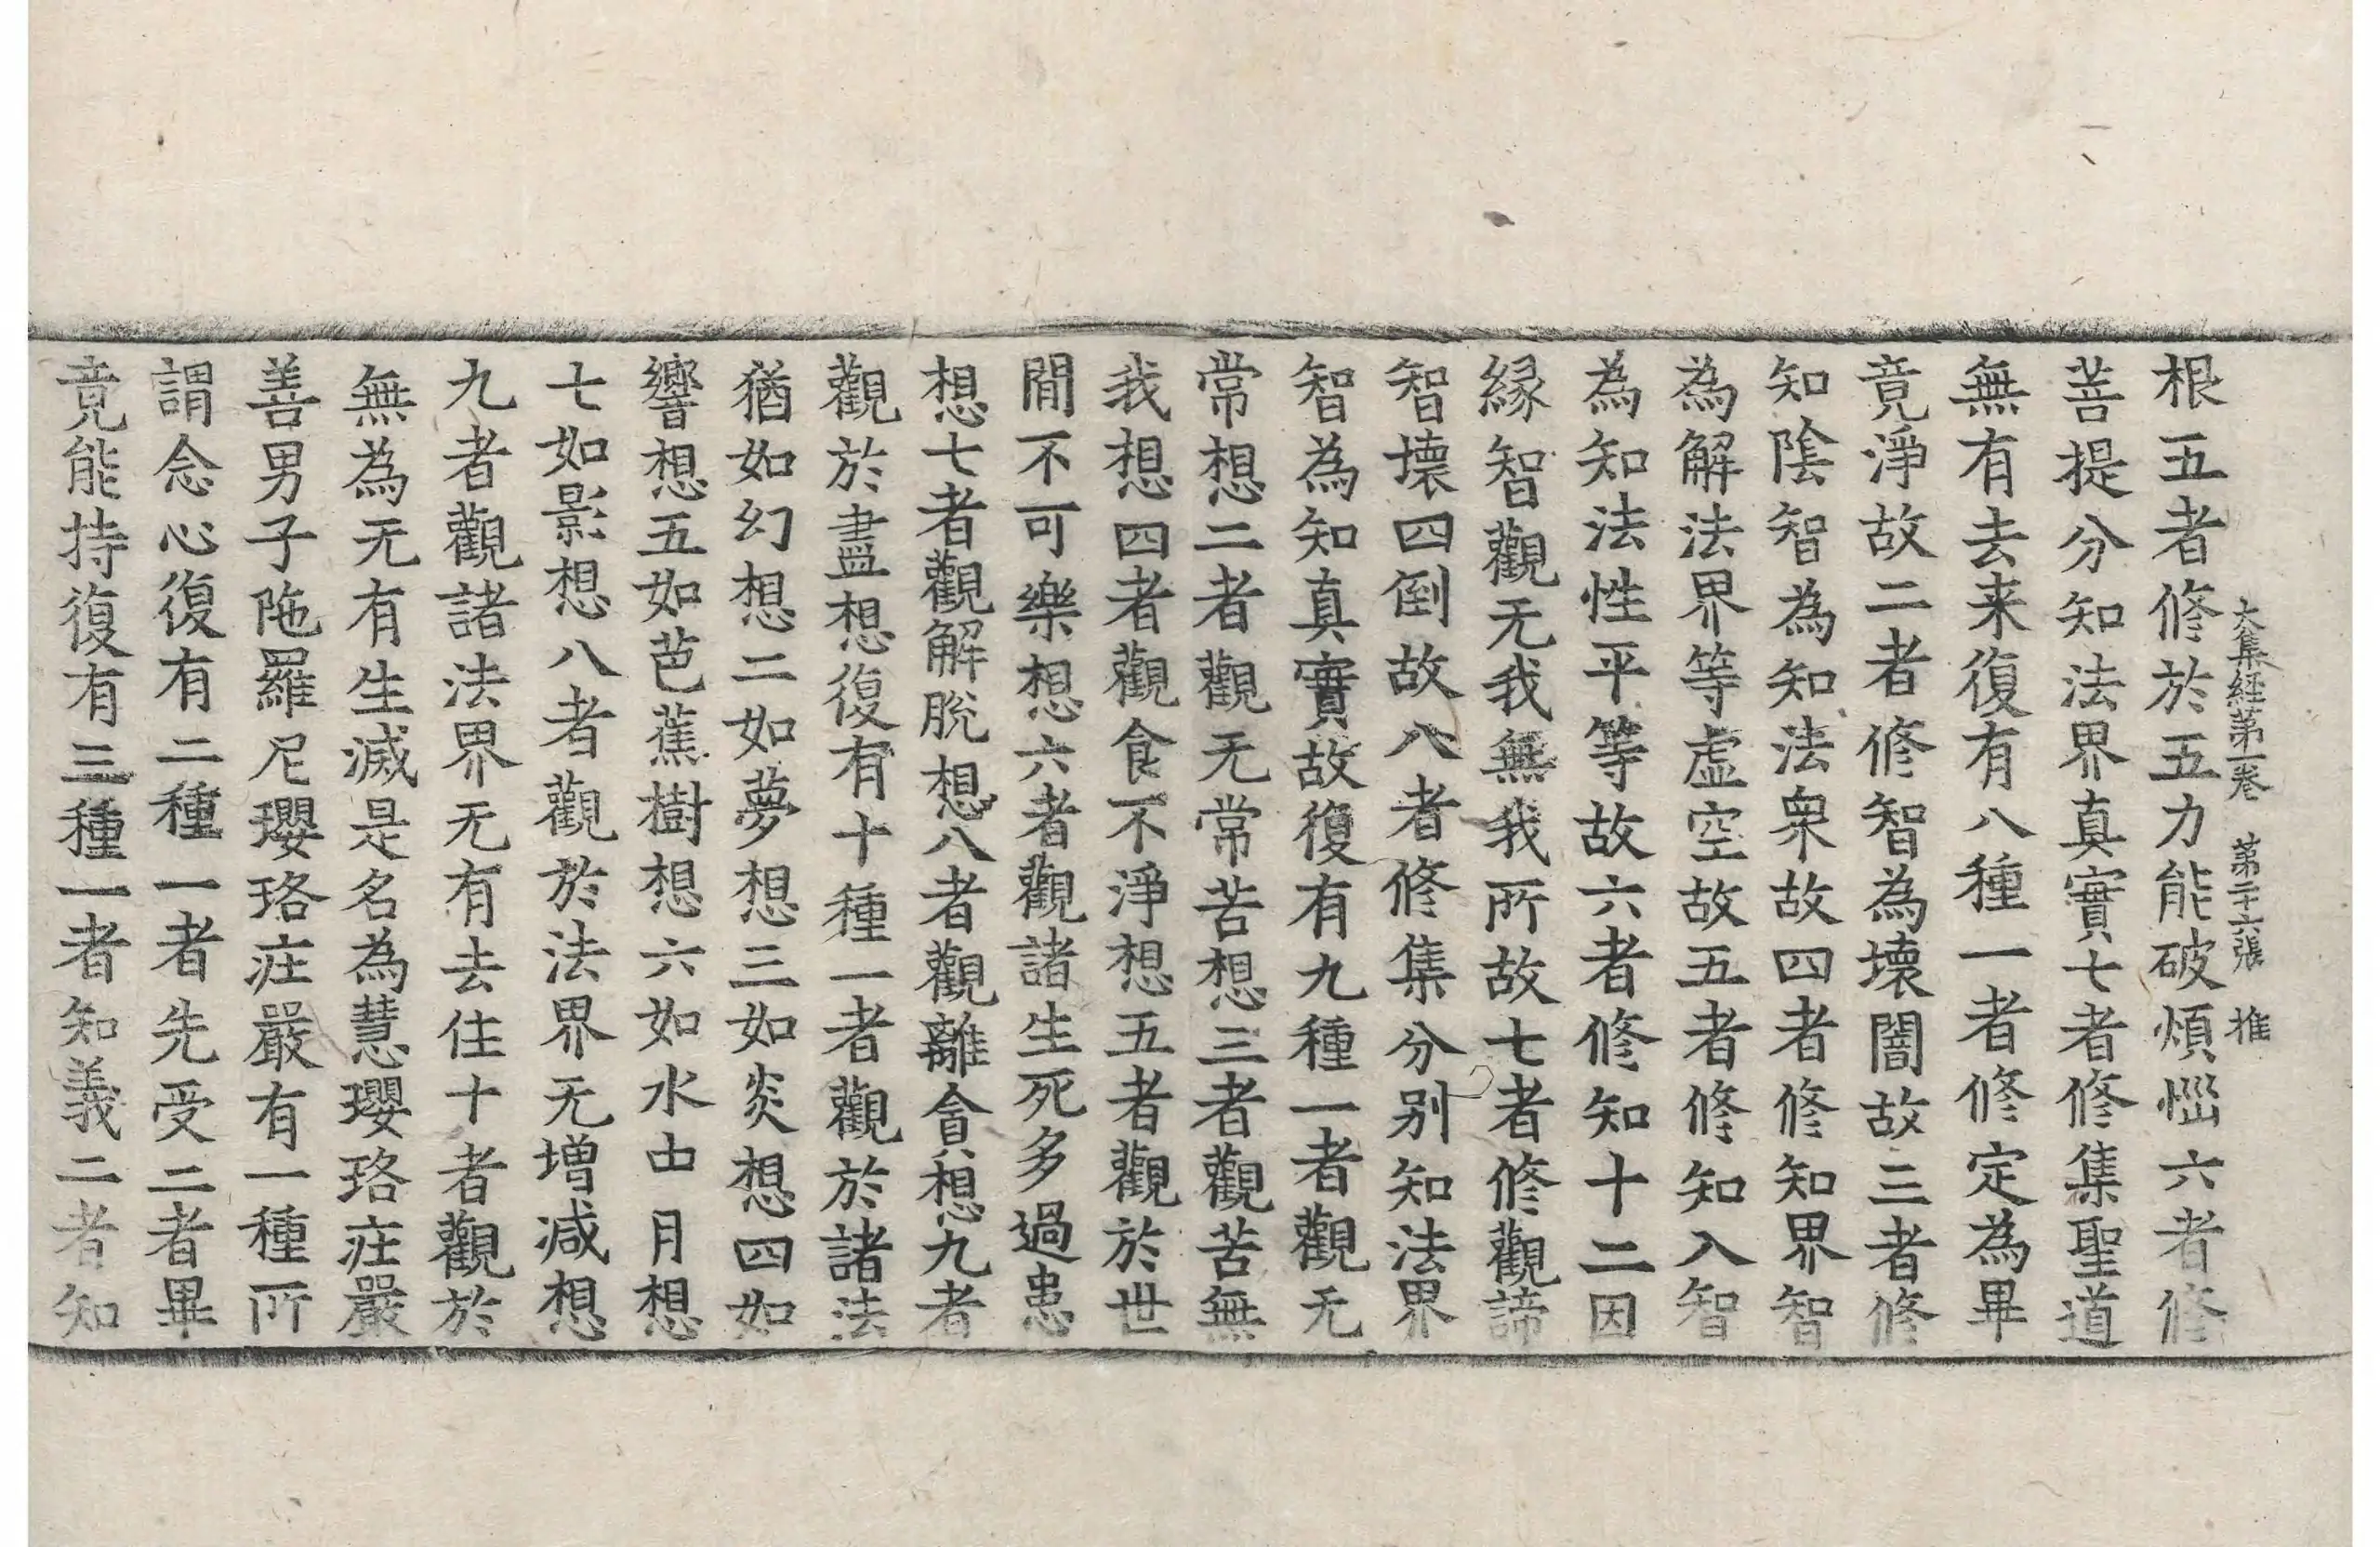 大集經第一卷 第二十六張 推
根五者修於五力能破煩惱六者修
菩提分知法界真實七者修集聖道
無有去来復有八種一者修定為畢
竟淨故二者修智為壞闇故三者修
知陰智為知法衆故四者修知界智
為解法界等虛空故五者修知入智
為知法性平等故六者修知十二因
縁智觀无我無我所故七者修觀諦
智壞四倒故八者修集分别知法界
智為知真實故復有九種一者觀无
常想二者觀无常苦想三者觀苦無
我想四者觀食不淨想五者觀於世
間不可樂想六者觀諸生死多過患
想七者觀解脫想八者觀離貪想九者
觀於盡想復有十種一者觀於諸法
猶如幻想二如夢想三如炎想四如
響想五如芭蕉樹想六如水中月想
七如影想八者觀於法界无增減想
九者觀諸法界无有去住十者觀於
無為无有生滅是名為慧瓔珞莊嚴
善男子陁羅尼瓔珞莊嚴有一種所
謂念心復有二種一者先受二者畢
竟能持復有三種一者知義二者知